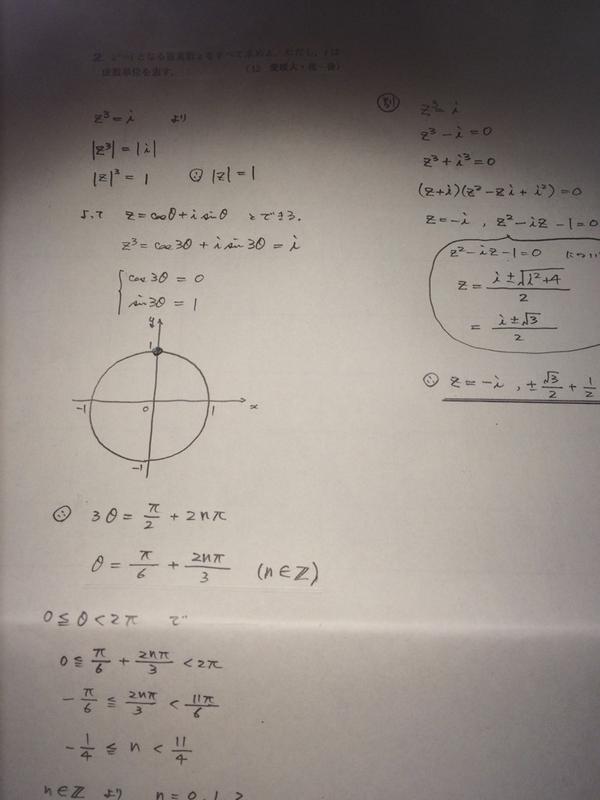 2. z³=i となる複素数 z をすべて求めよ。ただし、i は
虚数単位を表す。 (12 愛媛大・後)
z³ = i より
|z³| = |i|
|z|³ = 1 ∴ |z| = 1
よって z = cosθ + i sinθ とできる.
z³ = cos3θ + i sin3θ = i
cos3θ = 0
sin3θ = 1
y
1
-1 0 1 x
-1
∴ 3θ = π/2 + 2nπ
θ = π/6 + 2nπ/3 (n∈ℤ)
0 ≦ θ < 2π で
0 ≦ π/6 + 2nπ/3 < 2π
-π/6 ≦ 2nπ/3 < 11π/6
-1/4 ≦ n < 11/4
n∈ℤ より n = 0, 1, 2
別 z³ = i
z³ - i = 0
z³ + i³ = 0
(z+i)(z² - zi + i²) = 0
z = -i , z² - iz - 1 = 0
z² - iz - 1 = 0 につい
z = i ± √i²+4 / 2
= i ± √3 / 2
∴ z = -i , ± √3/2 + 1/2